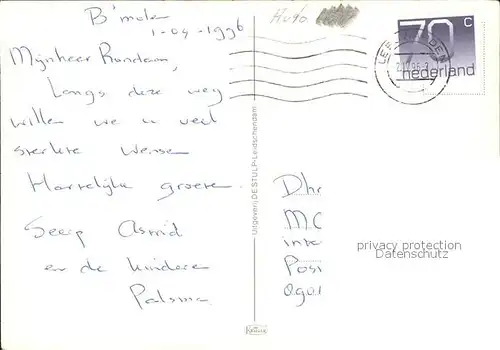 B'mole
1-09-1996
Mijnheer
Langs deze weg
willen we u veel
sterkte wensen
Hartelijke groeten
Seerp Astrid
en de kinderen
Palsma
70 c
nederland
Uitgeverij DE STULP-Leidschendam
Dhr
MC
Posi
privacy protection
Datenschutz